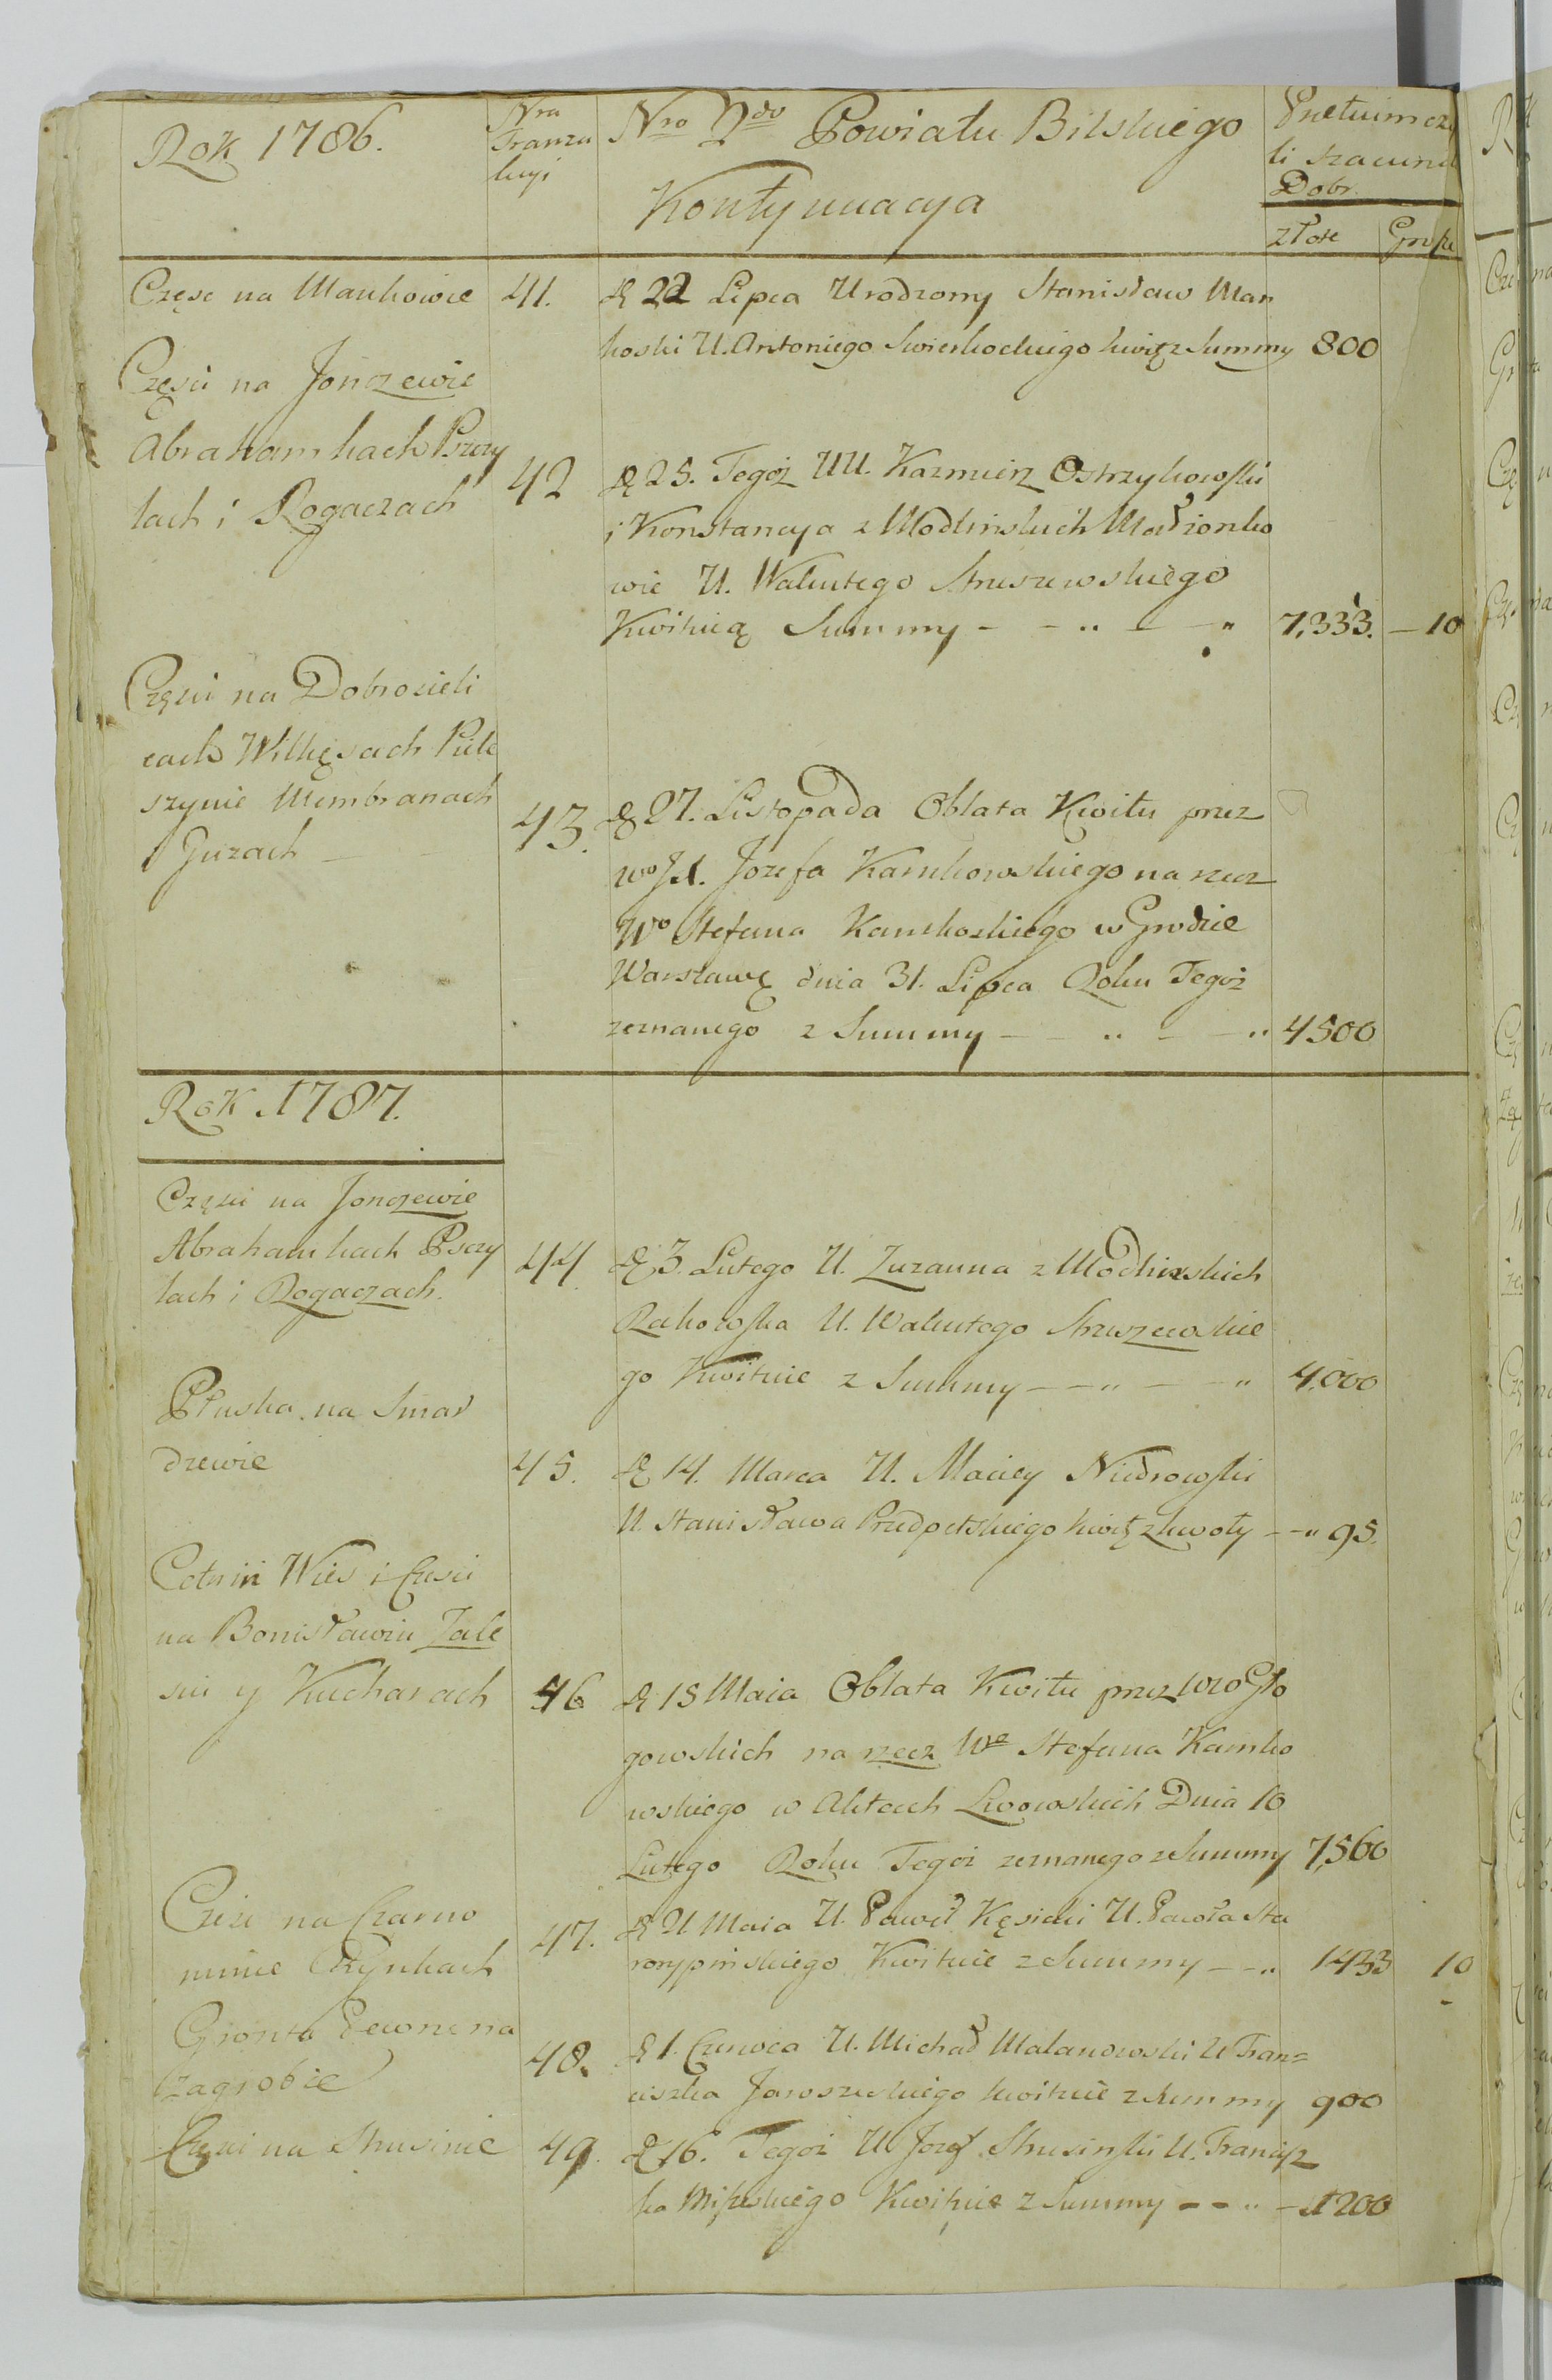 Rok 1786.
Nra
Tranza
kcyi
Nro 2do Powiatu Bilskiego
Kontynuacya
Pretium czy
li szacunek
Dobr.
złote Grosze
Częsc na Mankowie 41. D 22 Lipca Urodzony Stanisław Man
koski U. Antoniego Swierkockiego kwit: z Summy 800
Częsci na Jonczewie
Abrahamkach Pszczy
lach i Rogaczach 42 D 25. Tegoż UU. Kazmierz Ostrzykowski
i Konstancya z Modlinskich Małżonko
wie U. Walentego Struszewskiego
Kwituią Summy 7,333. 10
Częsci na Dobrosieli
cach Wilkęsach Piele
szynie Membranach
Guzach
43. D 27. Listopada Oblata Kwitu przez
Wo Jozefa Kamkowskiego na rzecz
Wo Stefana Kamkoskiego w Grodzie
Warszawę dnia 31. Lipca Roku Tegoż
zeznanego z Summy 4500
Rok 1787.
Częsci na Jonczewie
Abrahamkach Psczy
lach i Rogaczach.
44. D 3. Lutego U. Zuzanna z Modlinskich
Rakowska U. Walentego Struszewskie
go Kwituie z Summy 4,000
Płuska na Smar
dzewie
45. D 14. Marca U. Maciey Niedrowski
U. Stanisława Przedpełskiego kwit: z kwoty 95.
Cotnin Wies i Czesci
na Bonisławiu Zale
siu y Kucharach
46 D 15 Maia Oblata Kwitu przez WW Gło
gowskich na rzecz Wo Stefana Kamko
wskiego w Aktach Lwowskich Dnia 10
Lutego Roku Tegoż zeznanego z Summy 7,560
Czesc na Czarno
minie Rzynkach
47. D 21 Maia U. Paweł Kęsicki U. Pawła Sta
rorypinskiego Kwituie z Summy 1433 10
Gronta Pewne na
Zagrobie
48. D 1. Czerwca U. Michał Malanowski U Fran=
ciszka Jaroszeskiego kwituie z Summy 900
Częsci na Strusinie 49. D 16. Tegoż U Jozef Strusinski U. Francisz
ka Miszewskiego Kwituie z Summy 1200